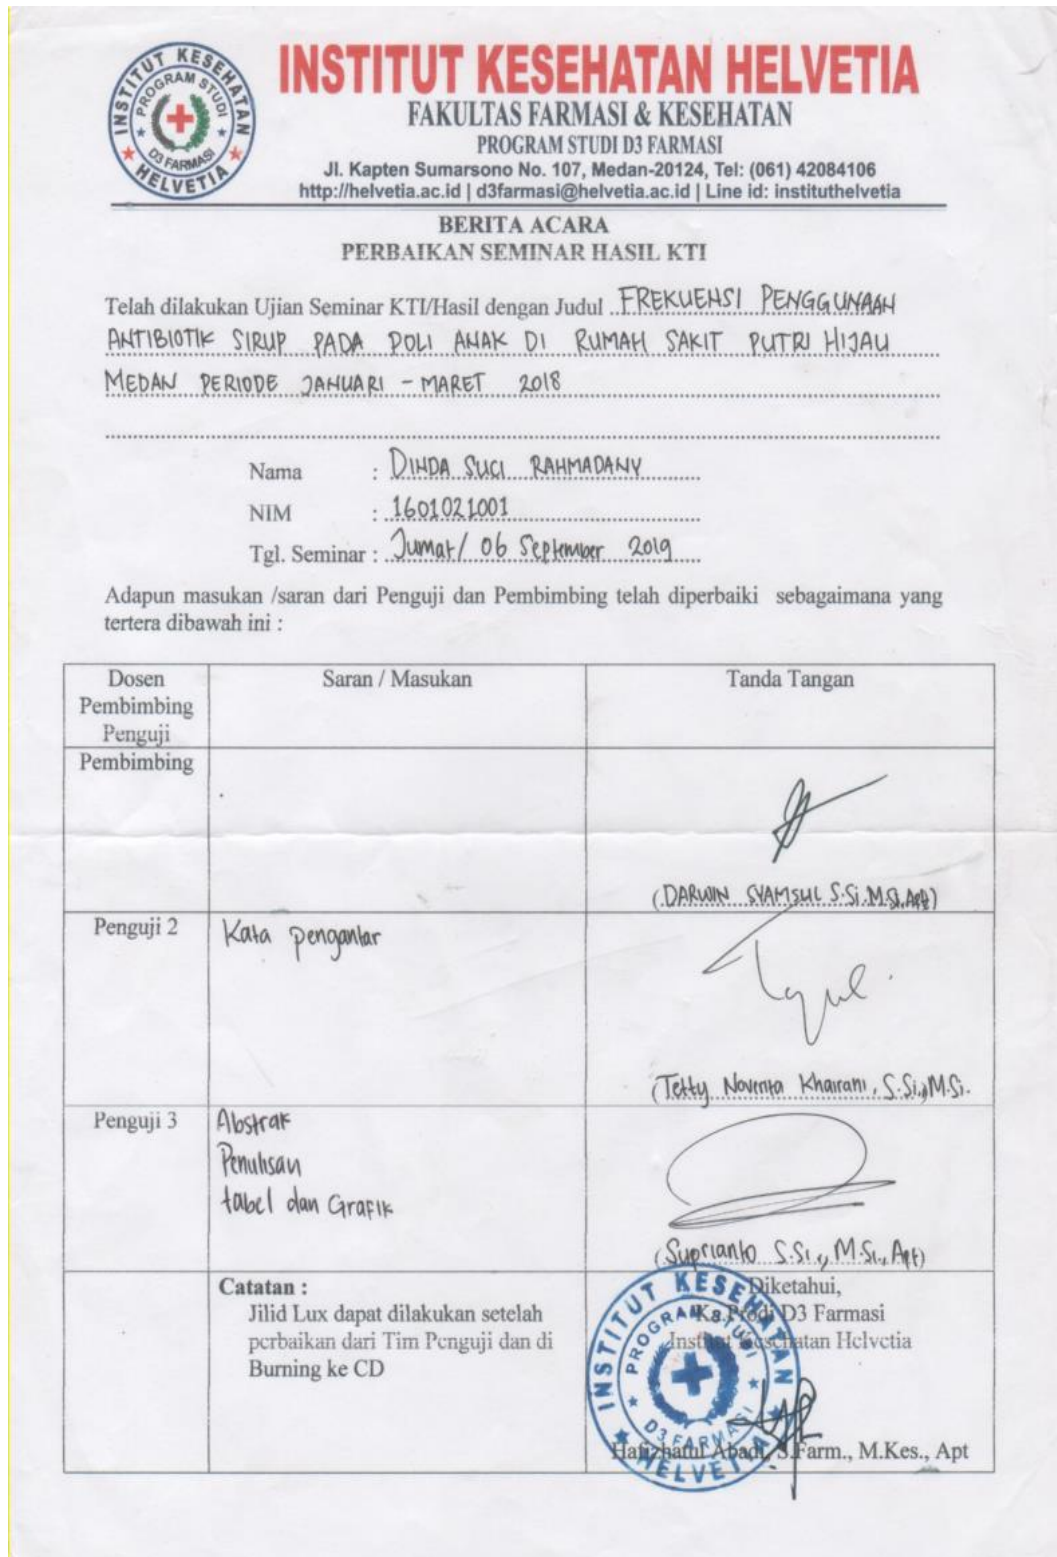 INSTITUT KESEHATAN
PROGRAM STUDI
D3 FARMASI
HELVETIA
INSTITUT KESEHATAN HELVETIA
FAKULTAS FARMASI & KESEHATAN
PROGRAM STUDI D3 FARMASI
Jl. Kapten Sumarsono No. 107, Medan-20124, Tel: (061) 42084106
http://helvetia.ac.id | d3farmasi@helvetia.ac.id | Line id: instituthelvetia
BERITA ACARA
PERBAIKAN SEMINAR HASIL KTI
Telah dilakukan Ujian Seminar KTI/Hasil dengan Judul FREKUENSI PENGGUNAAN
ANTIBIOTIK SIRUP PADA POLI ANAK DI RUMAH SAKIT PUTRI HIJAU
MEDAN PERIODE JANUARI - MARET 2018
Nama : DINDA SUCI RAHMADANY
NIM : 1601021001
Tgl. Seminar : Jumat/ 06 September 2019
Adapun masukan /saran dari Penguji dan Pembimbing telah diperbaiki sebagaimana yang
tertera dibawah ini :
Dosen
Pembimbing
Penguji
Saran / Masukan
Tanda Tangan
Pembimbing
(DARWIN SYAMSUL S.Si.M.Si.Apt)
Penguji 2
Kata pengantar
(Tetty Noverita Khairani, S.Si.,M.Si.
Penguji 3
Abstrak
Penulisan
tabel dan Grafik
(Suprianto S.Si., M.Si., Apt)
Catatan :
Jilid Lux dapat dilakukan setelah
perbaikan dari Tim Penguji dan di
Burning ke CD
Diketahui,
Ka. Prodi D3 Farmasi
Institut Kesehatan Helvetia
Hafizhatul Abadi, S.Farm., M.Kes., Apt
INSTITUT KESEHATAN
PROGRAM STUDI
D3 FARMASI
HELVETIA